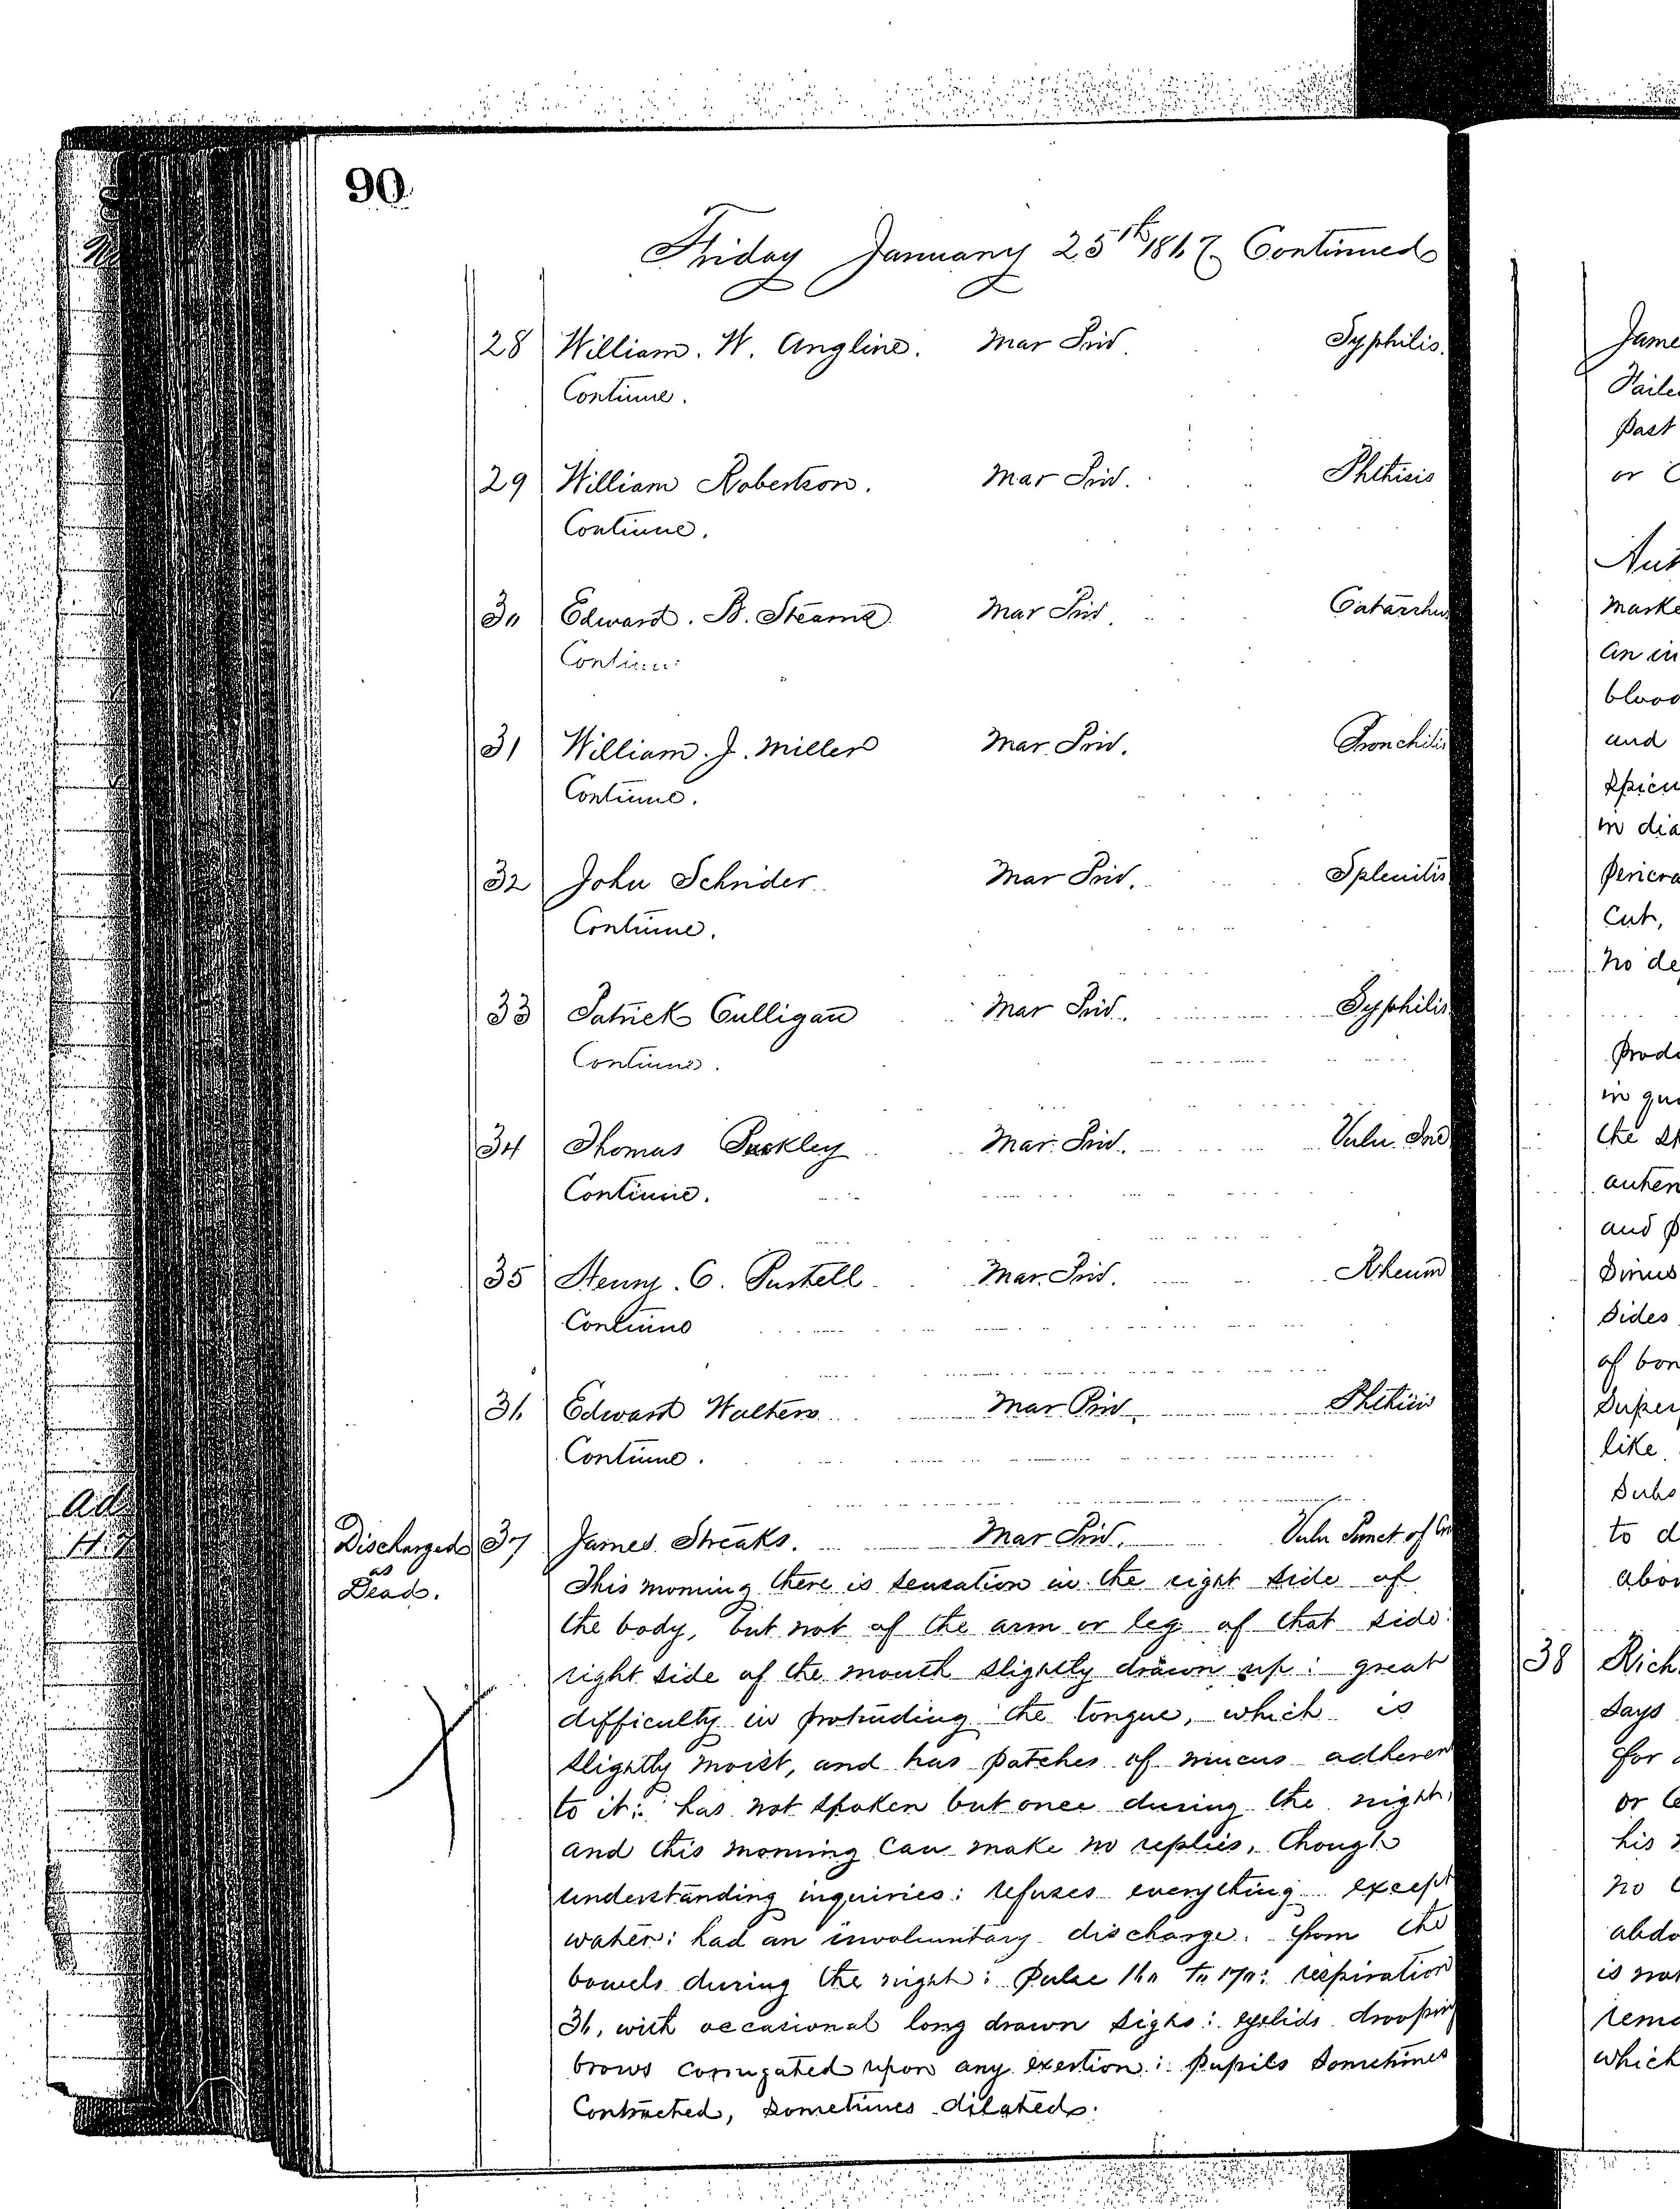 90
Friday January 25th 1867 Continued
28 William. W. Angline. Mar Priv. Syphilis.
Continue.
29 William Robertson. Mar Priv. Phthisis
Continue.
30 Edward. B. Stearns Mar Priv. Catarrhus
Continue
31 William. J. Miller Mar. Priv. Bronchitis
Continue.
32 John Schrider Mar Priv. Splenitis
Continue.
33 Patrick Culligan Mar Priv. Syphilis
Continue.
34 Thomas Mar. Priv. Vuln. Inc
Continue.
35 Henry. C. Mar. Priv. Rheum
Continue
36 Edward Walters Mar Priv. Phthisis
Continue.
Discharged 37 James Streaks. Mar Priv. Vuln Punct of
as
Dead.
This morning there is sensation in the right side of
the body, but not of the arm or leg of that side:
right side of the mouth slightly drawn up: great
difficulty in protruding the tongue, which is
slightly moist, and has patches of mucus adheren
to it: has not spoken but once during the night,
and this morning can make no replies, though
understanding inquiries: refuses everything except
water: had an involuntary discharge from the
bowels during the night: Pulse 160 to 170: respiration
36, with occasional long drawn sighs: eyelids drooping
brows corrugated upon any exertion: pupils sometimes
Contracted, sometimes dilated.
ad
Jame
Faile
past
or C
Aut
marke
an in
blood
and
spicu
in dia
pericra
cut,
no de
produ
in qua
the st
anter
and p
Sinus
sides
of bon
Super
like
Subs
to d
abov
38 Rich
says
for
or
his
no
abdo
is not
remo
which